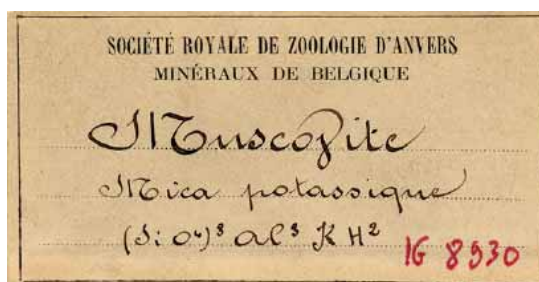 SOCIÉTÉ ROYALE DE ZOOLOGIE D'ANVERS
MINÉRAUX DE BELGIQUE
Muscovite
Mica potassique
(Si O⁴)³ Al³ K H²
IG 8930